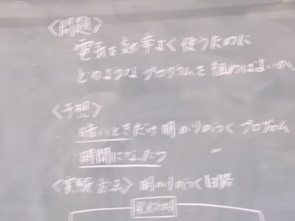 〈問題〉
電気を効率よく使うために
どのようなプログラムを組めばよいか。
〈予想〉
暗いときだけ明かりがつくプログラム
時間になったら 〃
〈実験方法〉明かりがつく回路